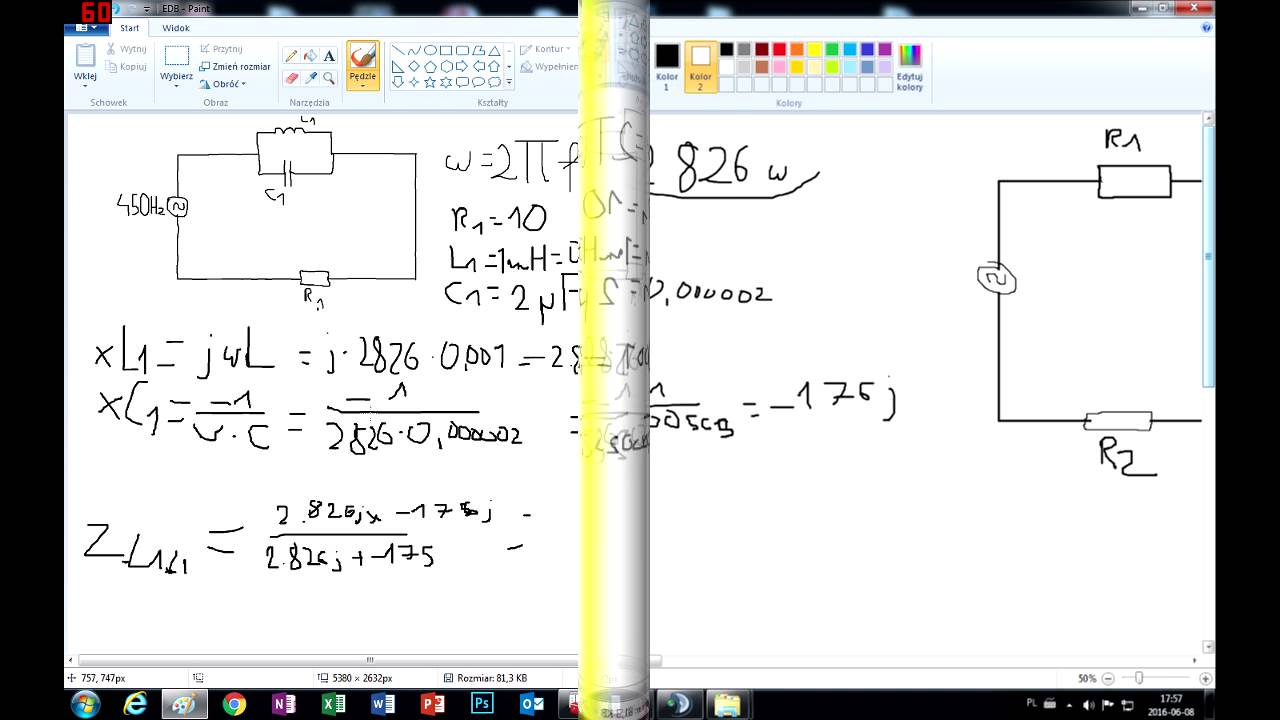 60
EDB - Paint
Start Widok
Wklej
Wytnij
Kopiuj
Schowek
Wybierz
Przytnij
Zmień rozmiar
Obróć
Obraz
Narzędzia
Pędzle
Kształty
Kontur
Wypełnien
Kolor 1
Kolor 2
Edytuj kolory
Kolory
L1
C1
450Hz
R1
ω=2π
826 ω
R1=10
L1=1mH=0
C1=2μF
0,000002
xL1=jωL=j·2826·0,001=2.8
xC1=-1/ω·C=-1/2826·0,000002=
=-175j
Z L1C1=2.826jx-175j/2.826j+-175
R1
R2
757, 747px
5380 × 2632px
Rozmiar: 81,3 KB
50%
PL
17:57
2016-06-08